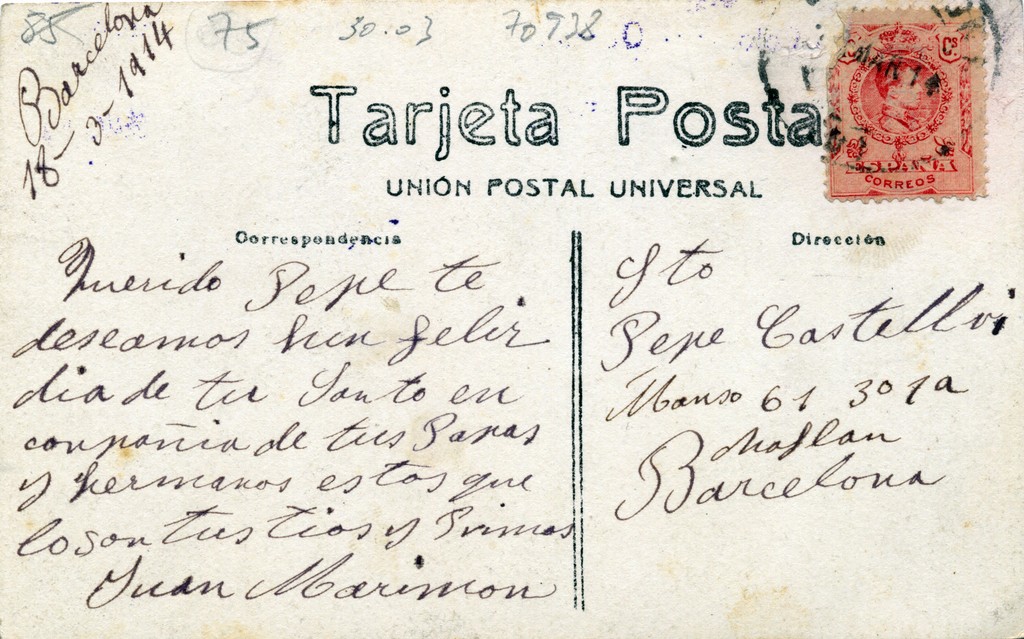 85 75 30.03 70938
Barcelona
18-3-1914
Tarjeta Posta
UNIÓN POSTAL UNIVERSAL
Cs
CORREOS
MAR 14
Correspondencia
Querido Pepe te
deseamos hun feliz
dia de tu Santo en
conpañia de tus Papas
y hermanos estos que
lo son tus tios y Primos
Juan Marimon
Dirección
Sto
Pepe Castellvi
Manso 61 3º 1a
Barcelona